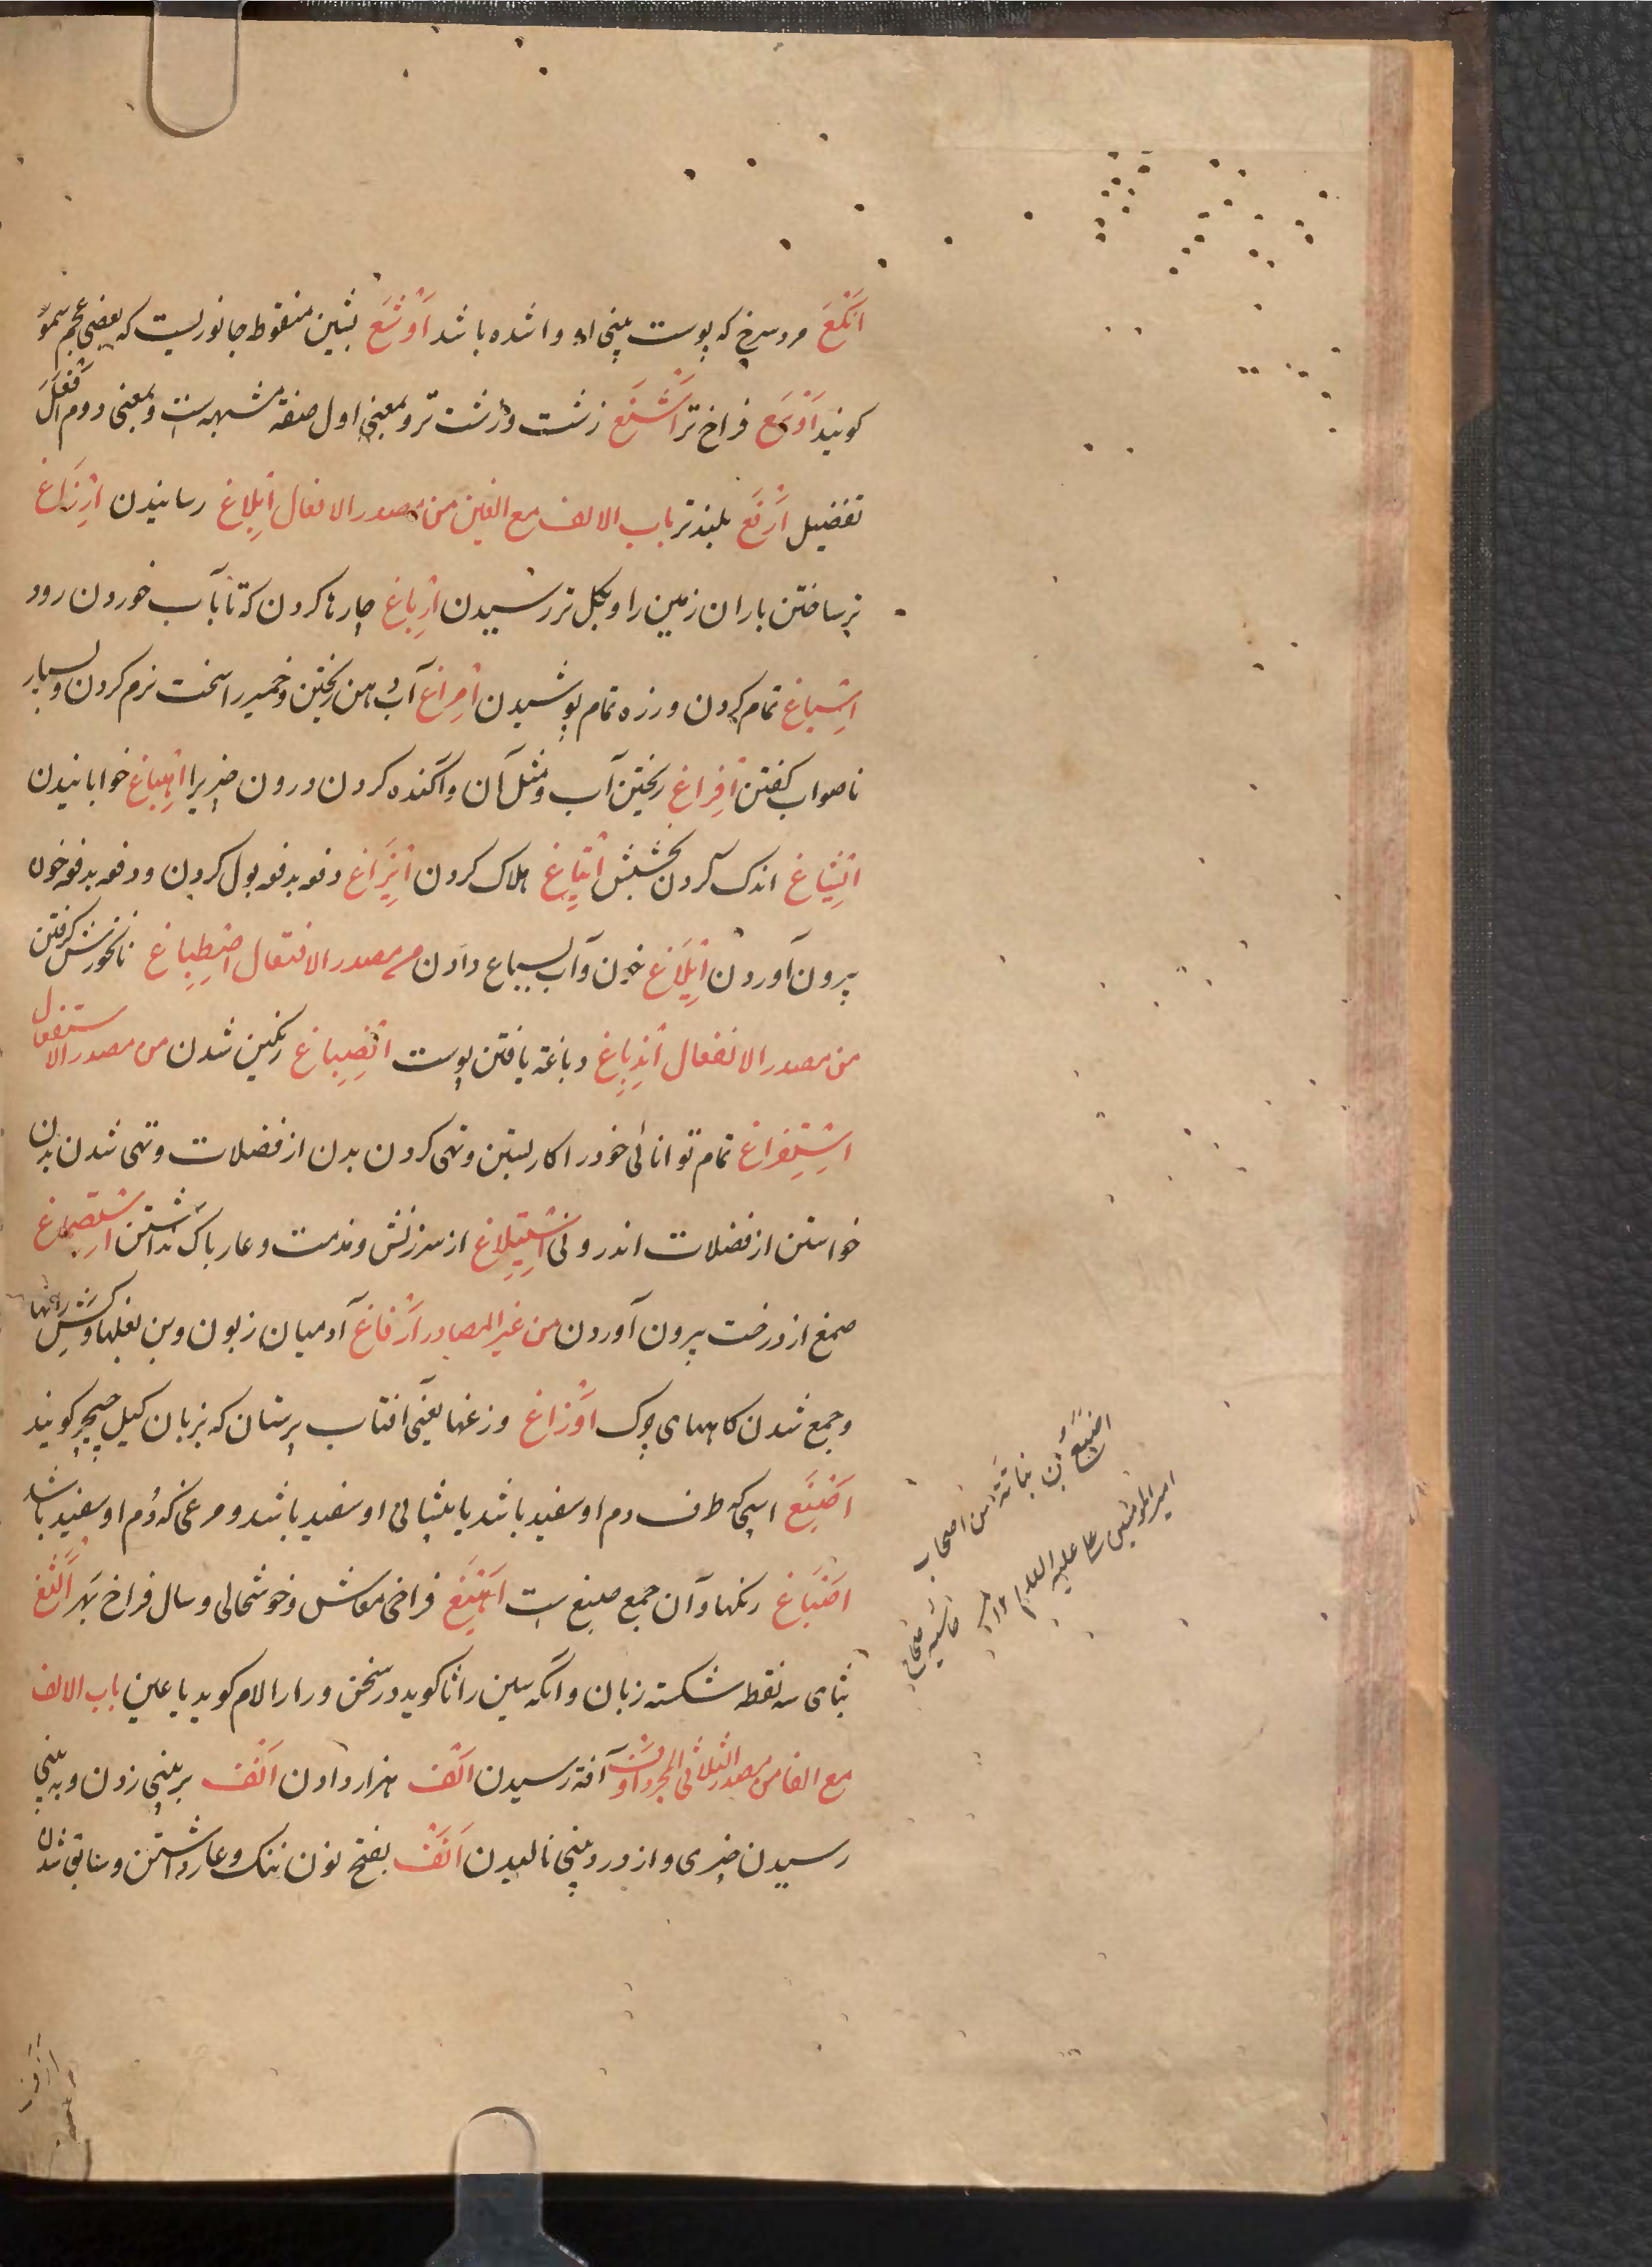 اَنْکَعْ مرد سرخ که پوست بینی او واشده باشد اَوْشَعْ بشین منقوط جانوریست که بعضی عجم سمو
کویند اَوْسَعْ فراخ تر اَشْنَعْ زشت و زشت تر و بمعنی اول صفة مشبهه است و بمعنی دوم افعل
تفضیل اَرْفَعْ بلندتر باب الالف مع الغین من مصدر الافعال اِبْلِاغ رسانیدن اِرْزَاغ
تر ساختن باران زمین را و بکل تر رسیدن اِرْبَاغ چار تا کردن که تا بآب خوردن رود
اِسْبَاغ تمام کردن و زره تمام پوشیدن اِمْرَاغ آب دهن ریختن و خمیر را سخت نرم کردن و بسیار
ناصواب کفتن اِفْرَاغ ریختن آب و مثل آن و آکنده کردن درون چیزیرا اِهْبَاغ خوابانیدن
اِنْشَاغ اندک کردن بخشش اِیتَاغ هلاک کردن اِیزَاغ دفعه بدفعه بول کردن و دفعه بدفعه خون
بیرون آوردن اِیلَاغ خون و آب بسباع دادن من مصدر الافتعال اِصْطِبَاغ نانخورش کرفتن
من مصدر الانفعال اِنْدِبَاغ دباغة یافتن پوست اِنْصِبَاغ رنکین شدن من مصدر الاستفعال
اِسْتِفْرَاغ تمام توانائی خود را کار بستن و تهی کردن بدن از فضلات و تهی شدن بدن
خواستن از فضلات اندرونی اِسْتِیلَاغ از سرزنش و مذمت و عار باک نداشتن اِسْتِصْمَاغ
صمغ از درخت بیرون آوردن من غیر المصادر اَرْفَاغ آدمیان زبون و بن بغلها و کش رانها
و جمع شدن کاههای چرک اَوْزَاغ وزغها یعنی افتاب پرستان که بزبان کیل چیچر کویند
اَصْبَغ اسپی که طرف دم او سفید باشد یا پیشانی او سفید باشد و مرغی که دُم او سفید باشد
اَصْبَاغ رنکها و آن جمع صبغ ست اَهْیَغ فراخی معاش و خوشحالی و سال فراخ بهر اَلْثَغ
بثای سه نقطه شکسته زبان و آنکه سین را ثا کوید در سخن و را را لام کوید یا غین باب الالف
مع الفا من مصدر الثلاثی المجرد اَوْف آفة رسیدن اَلْف هزار دادن اَنْف بر بینی زدن و به بینی
رسیدن چیزی و از درد بینی نالیدن اَنَف بفتح نون ننک و عار داشتن و سابق شدن
اصبغ بن نباتة من اصحاب
امیر المؤمنین علی علیه السلام ١٢